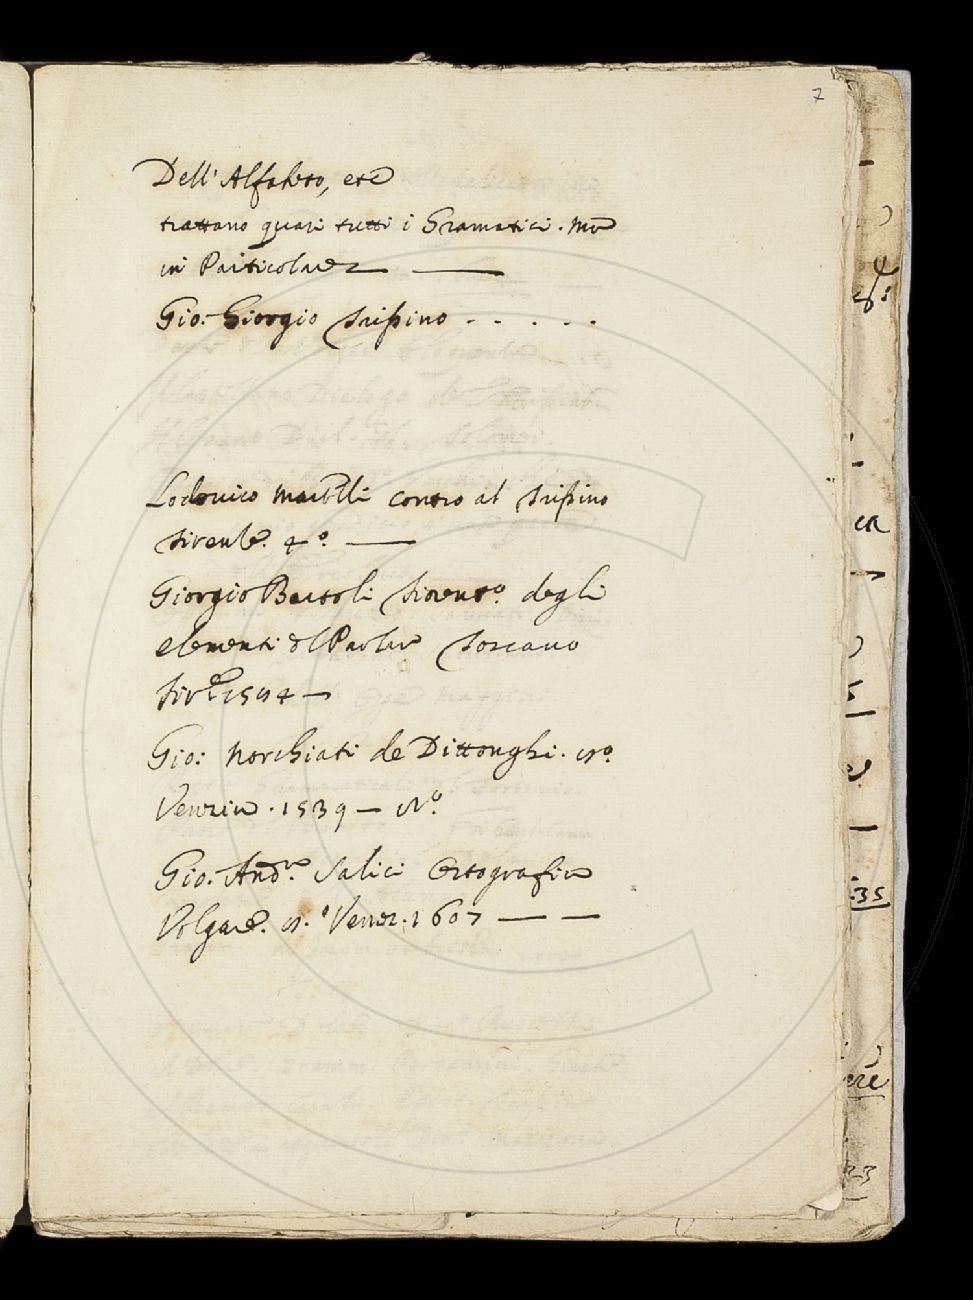 7
Dell' Alfabeto, etc
trattano quasi tutti i Gramatici. ma
in Particolare
Gio: Giorgio Trissino . . . . .
Lodovico Martelli contro al Trissino
Firenze. 4.º —
Giorgio Bartoli Fiorent.º degli
elementi del Parlar Toscano
1584 —
Gio: Norchiati de Dittonghi.
Venezia. 1539 —
Gio. And.ª Salici Ortografia
Volgare. Venez. 1607 — —